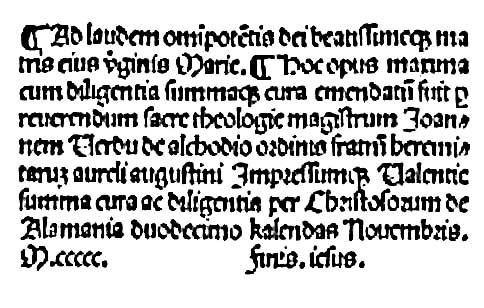 ¶ Ad laudem omīpotētis dei beatissimeqȝ ma
tris eius v̄ginis Marie. ¶ Hoc opus maxima
cum diligentia summaqȝ cura emendatū fuit ꝑ
reuerendum sacre theologie magistrum Joan⸗
nem Uerdu de alchodio ordinis fratrū heremi⸗
taruȝ aureli augustini Impressumqȝ Ualentie
summa cura ac diligentia per Christoforum de
Alamania duodecimo kalendas Nouembris.
M.ccccc. finis. iesus.